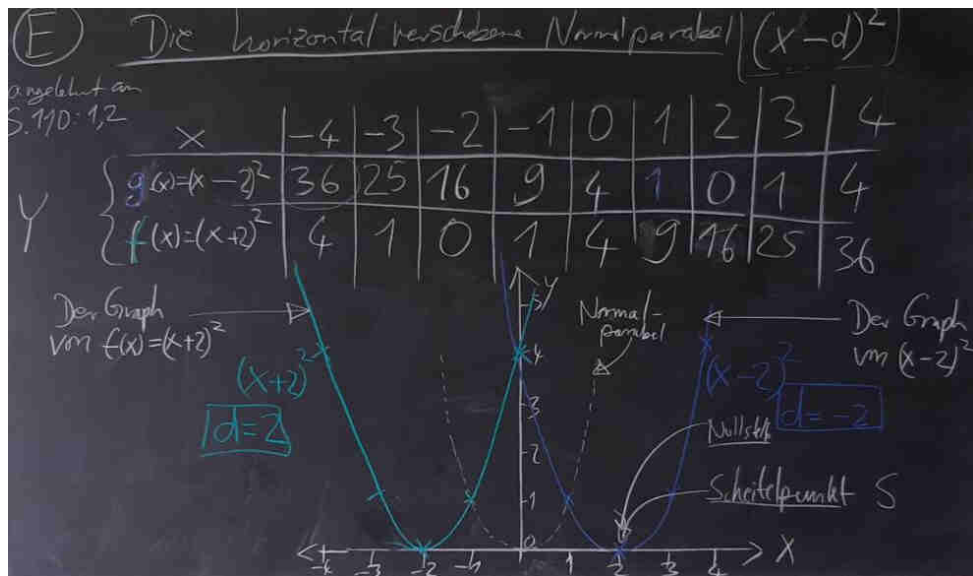 E Die horizontal verschobene Normalparabel (x-d)²
angelehnt an
S. 110: 1,2
X -4 -3 -2 -1 0 1 2 3 4
Y
g(x)=(x-2)² 36 25 16 9 4 1 0 1 4
f(x)=(x+2)² 4 1 0 1 4 9 16 25 36
Der Graph
von f(x)=(x+2)²
(x+2)²
d=2
Normal-
parabel
Der Graph
von (x-2)²
(x-2)²
d=-2
Nullstelle
Scheitelpunkt S
y
5
4
3
2
1
0
-4 -3 -2 -1 1 2 3 4 X